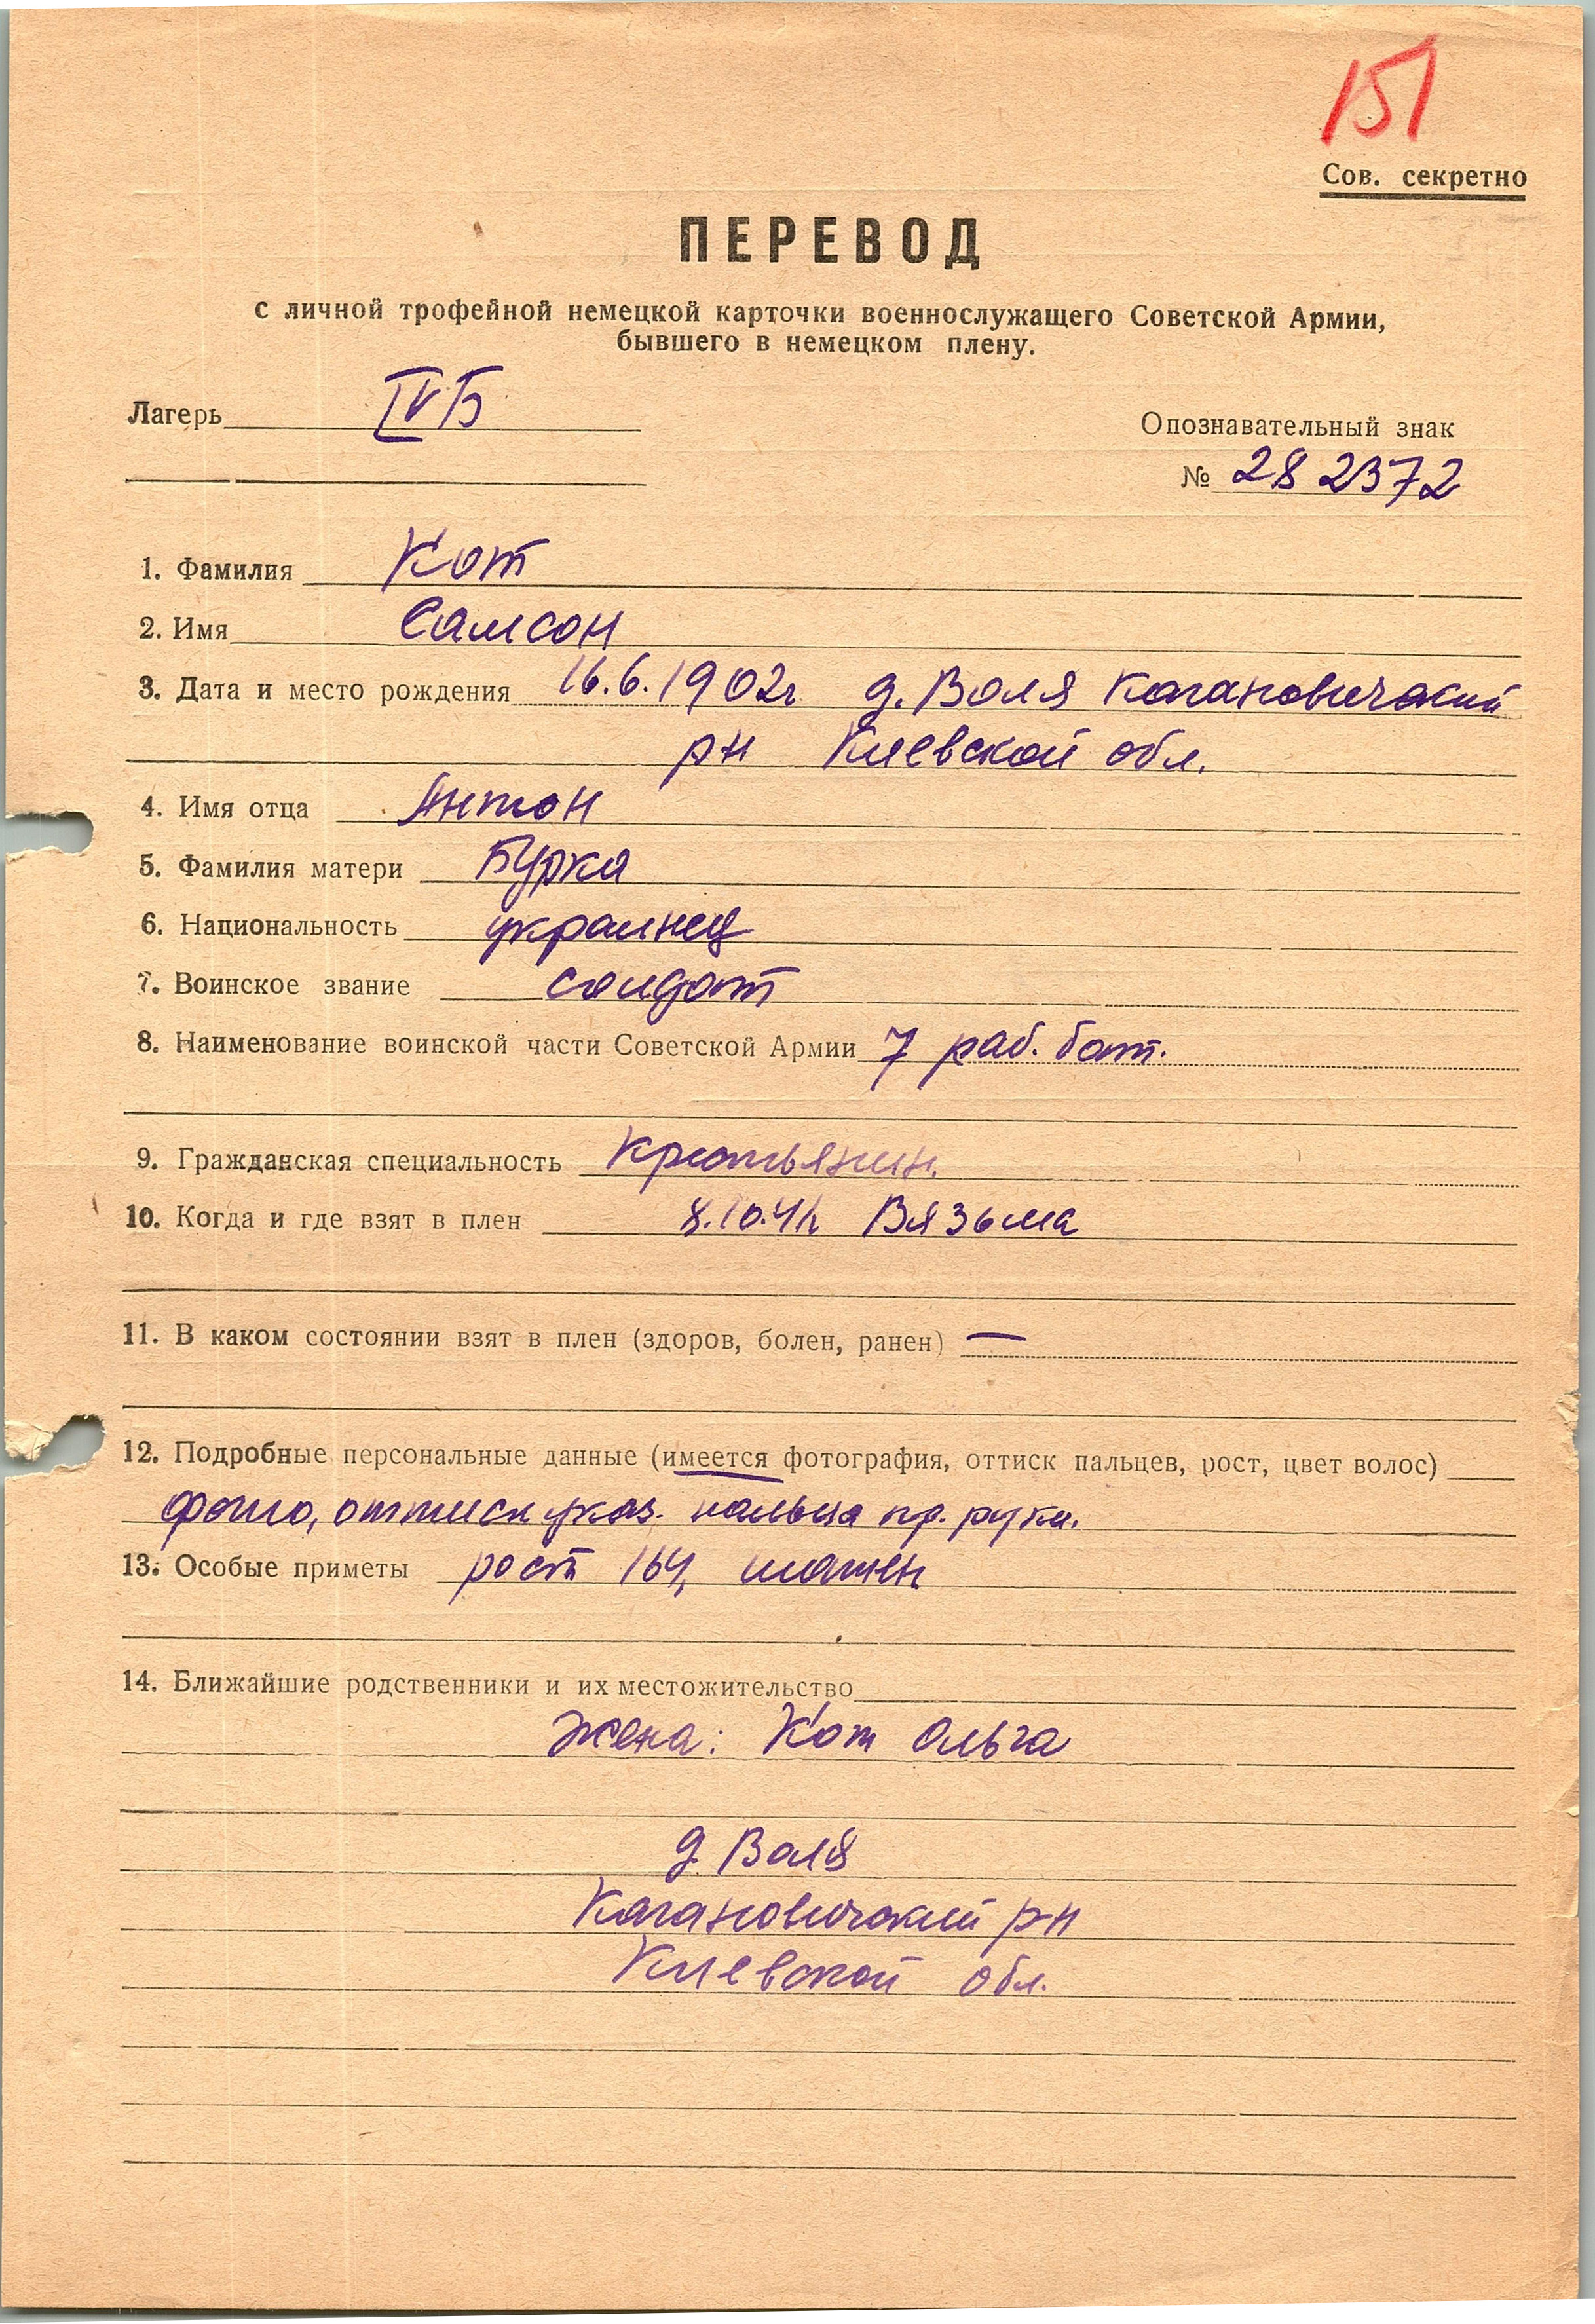 151
Сов. секретно
ПЕРЕВОД
с личной трофейной немецкой карточки военнослужащего Советской Армии,
бывшего в немецком плену.
Лагерь IV Б
Опознавательный знак
№ 282372
1. Фамилия Кот
2. Имя Самсон
3. Дата и место рождения 16.6.1902г д. Воля Кагановический
рн Киевской обл.
4. Имя отца Антон
5. Фамилия матери Бурка
6. Национальность украинец
7. Воинское звание солдат
8. Наименование воинской части Советской Армии 7 раб. бат.
9. Гражданская специальность крестьянин.
10. Когда и где взят в плен 8.10.41г Вязьма
11. В каком состоянии взят в плен (здоров, болен, ранен) —
12. Подробные персональные данные (имеется фотография, оттиск пальцев, рост, цвет волос)
фото, оттиск указ. пальца пр. руки.
13. Особые приметы рост 164, шатен
14. Ближайшие родственники и их местожительство
жена: Кот Ольга
д. Воля
Кагановический р-н
Киевской обл.